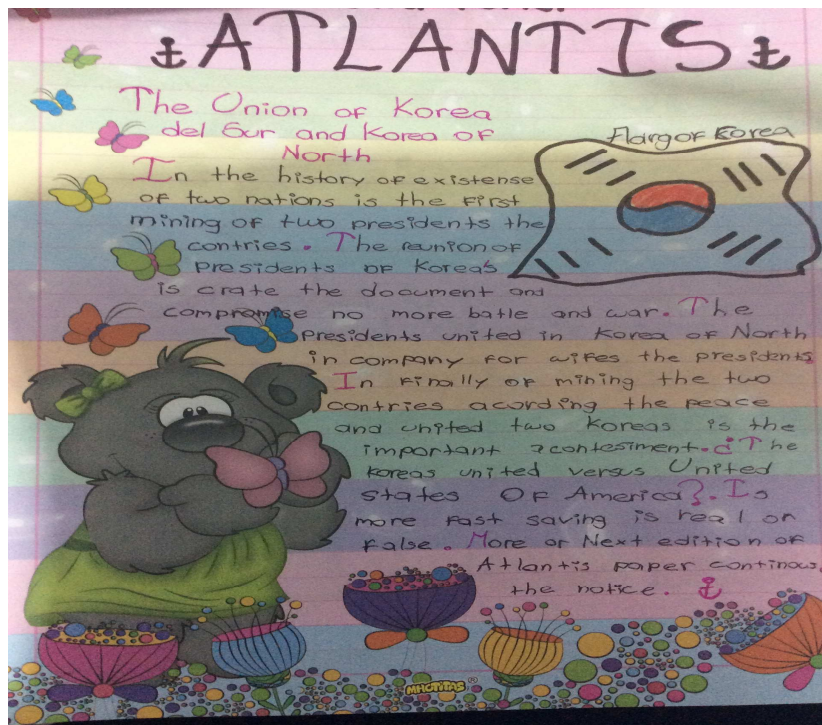 ATLANTIS
The Union of Korea
del Sur and Korea of
North
Flarg of Korea
In the history of existense
of two nations is the first
mining of two presidents the
contries. The reunion of
presidents of Korea's
is crate the document and
compromise no more batle and war. The
presidents united in Korea of North
in company for wifes the presidents
In finally of mining the two
contries acording the peace
and united two Koreas is the
important acontesiment. ¿The
Koreas united versus United
States Of America?. Is
more fast saving is real or
false. More or Next edition of
Atlantis paper continous
the notice.
MHOTITAS®